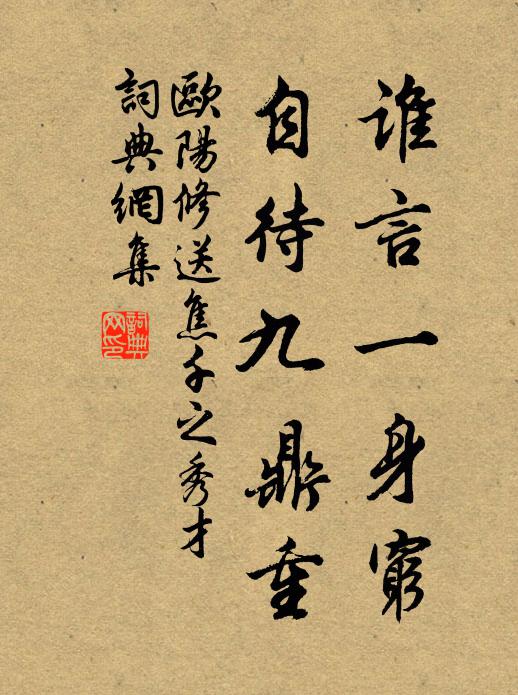 誰言一身窮
自待九鼎重
歐陽修送焦千之秀才
詞典網集
詞典
网印